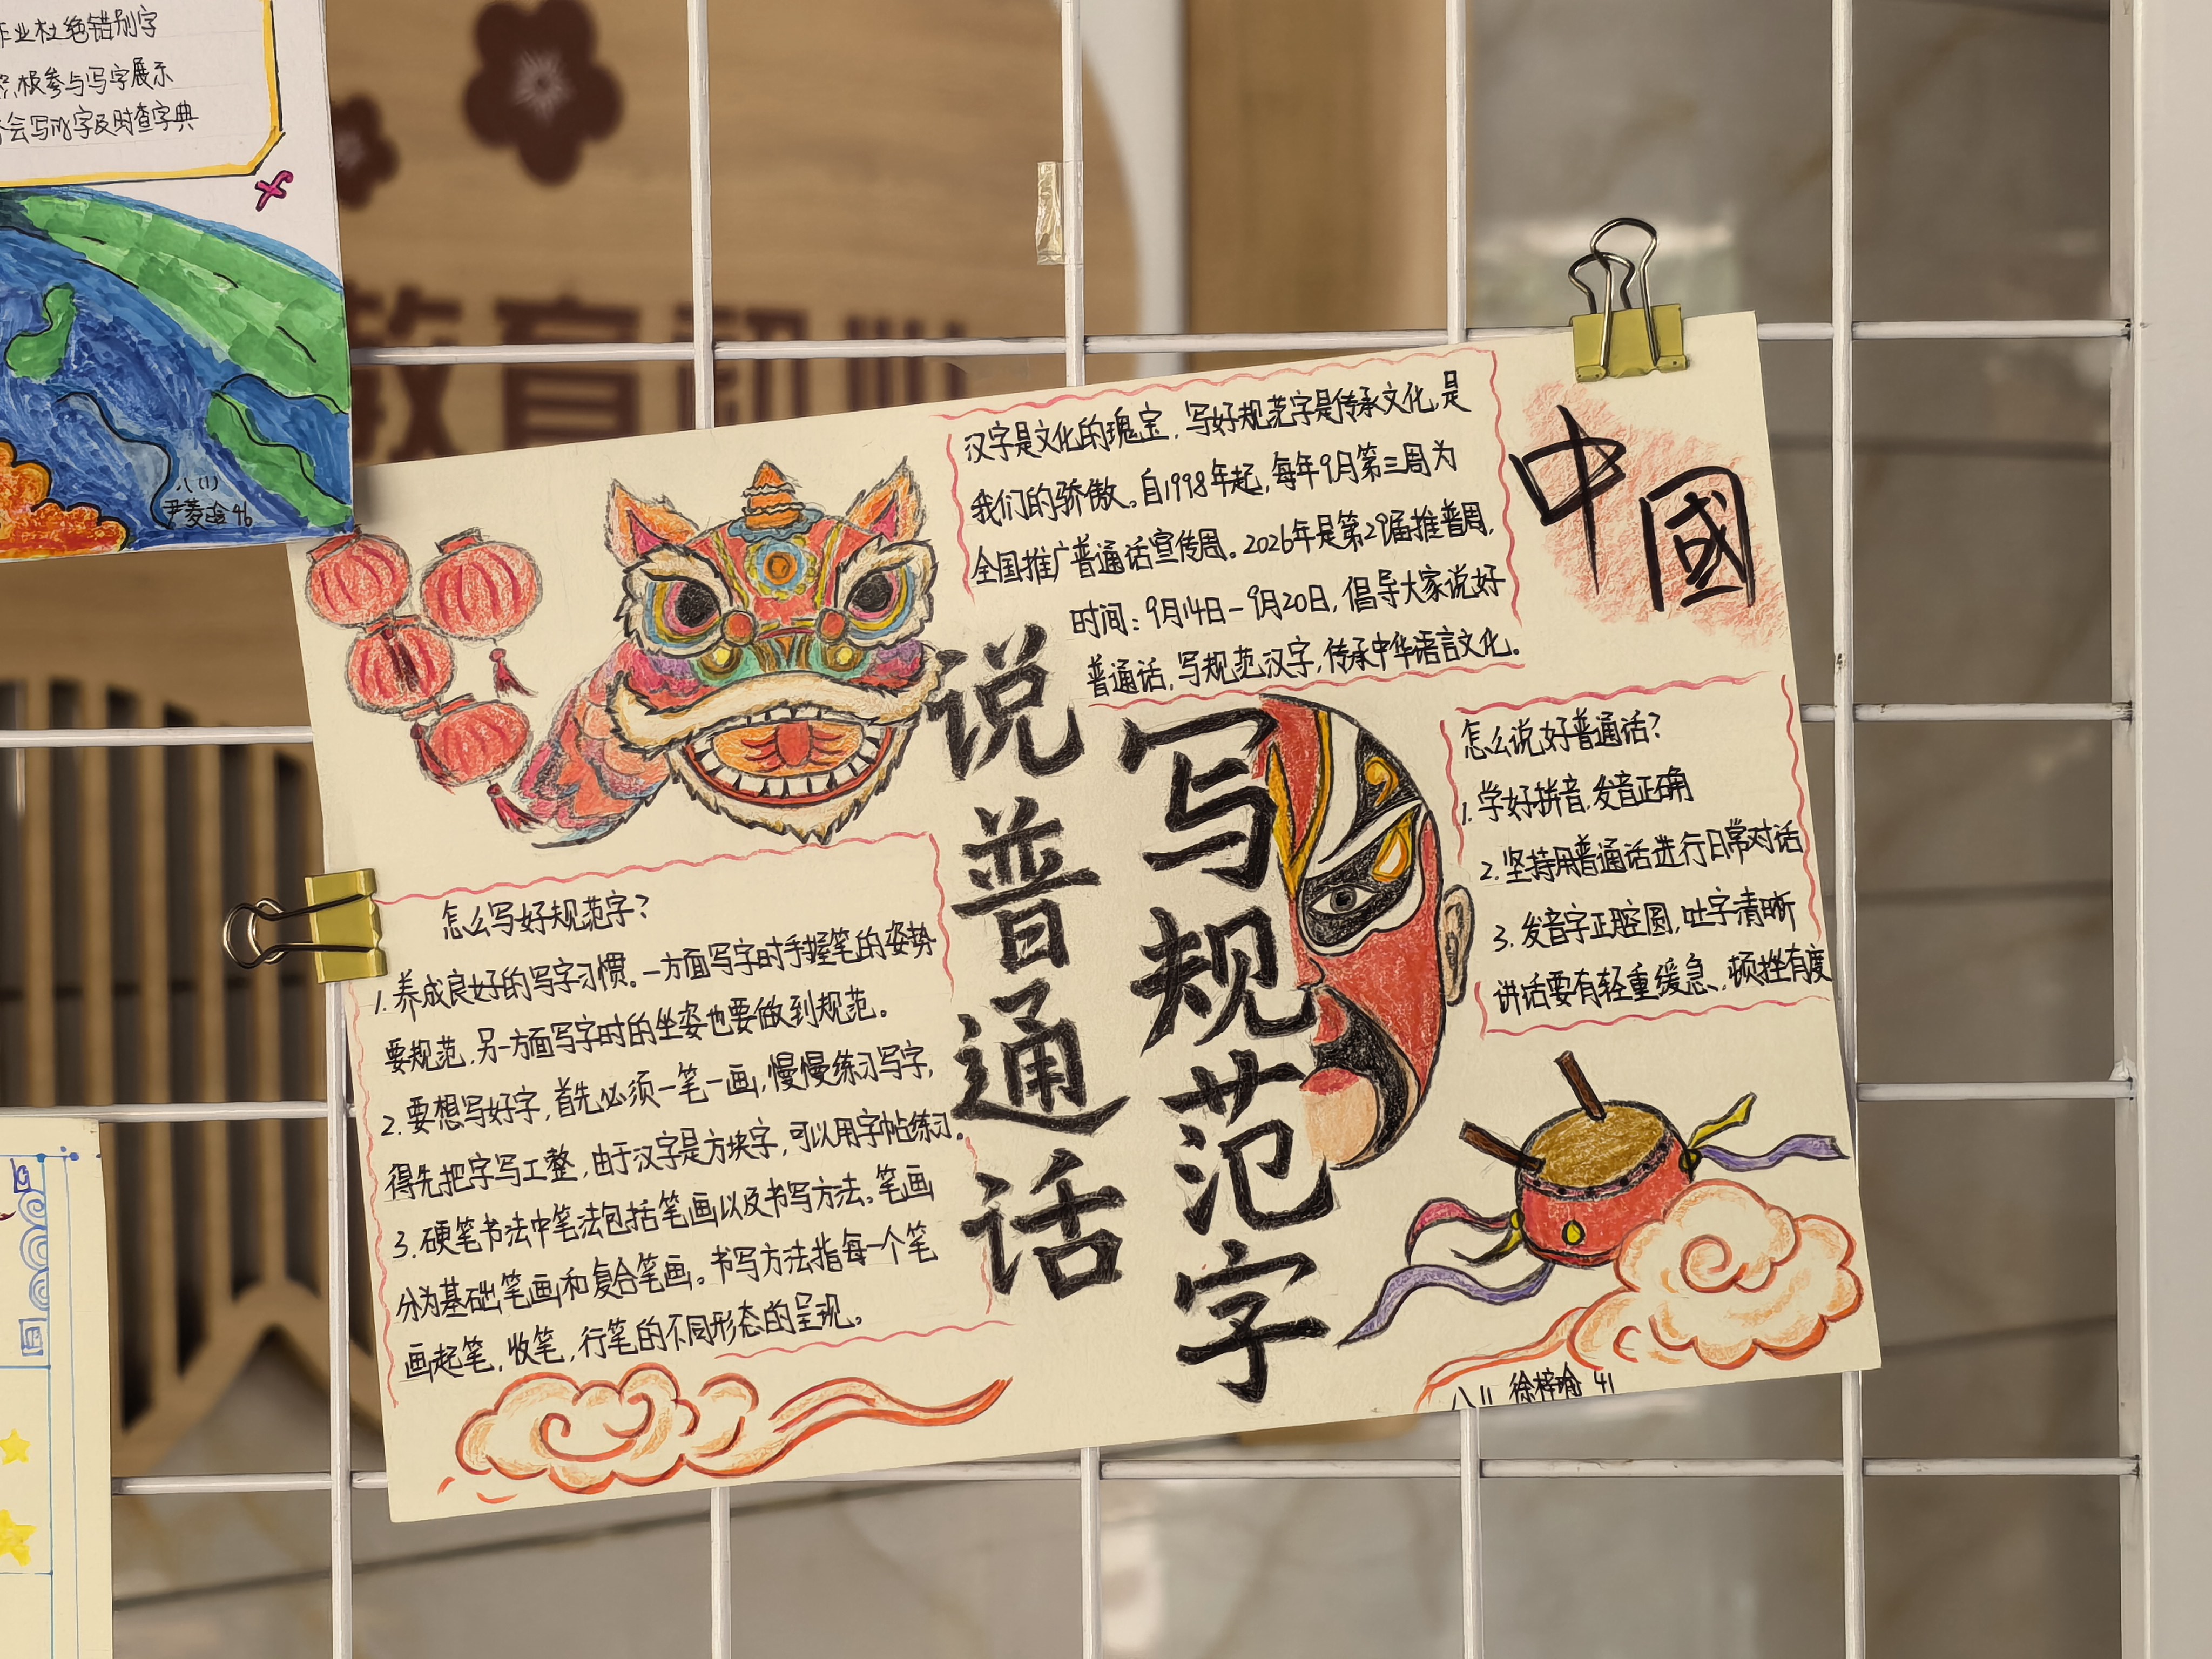 作业杜绝错别字
积极参与写字展示
不会写的字及时查字典
八(1)
46
教育初心
汉字是文化的瑰宝，写好规范字是传承文化，是
我们的骄傲。自1998年起，每年9月第三周为
全国推广普通话宣传周。2026年是第29届推普周，
时间：9月14日-9月20日，倡导大家说好
普通话，写规范汉字，传承中华语言文化。
中國
说普通话
写规范字
怎么说好普通话？
1.学好拼音，发音正确
2.坚持用普通话进行日常对话
3.发音字正腔圆，吐字清晰
讲话要有轻重缓急，顿挫有度
怎么写好规范字？
1.养成良好的写字习惯。一方面写字时手握笔的姿势
要规范，另一方面写字时的坐姿也要做到规范。
2.要想写好字，首先必须一笔一画，慢慢练习写字，
得先把字写工整，由于汉字是方块字，可以用字帖练习。
3.硬笔书法中笔法包括笔画以及书写方法。笔画
分为基础笔画和复合笔画。书写方法指每一个笔
画起笔，收笔，行笔的不同形态的呈现。
八11 徐梓瑜 41